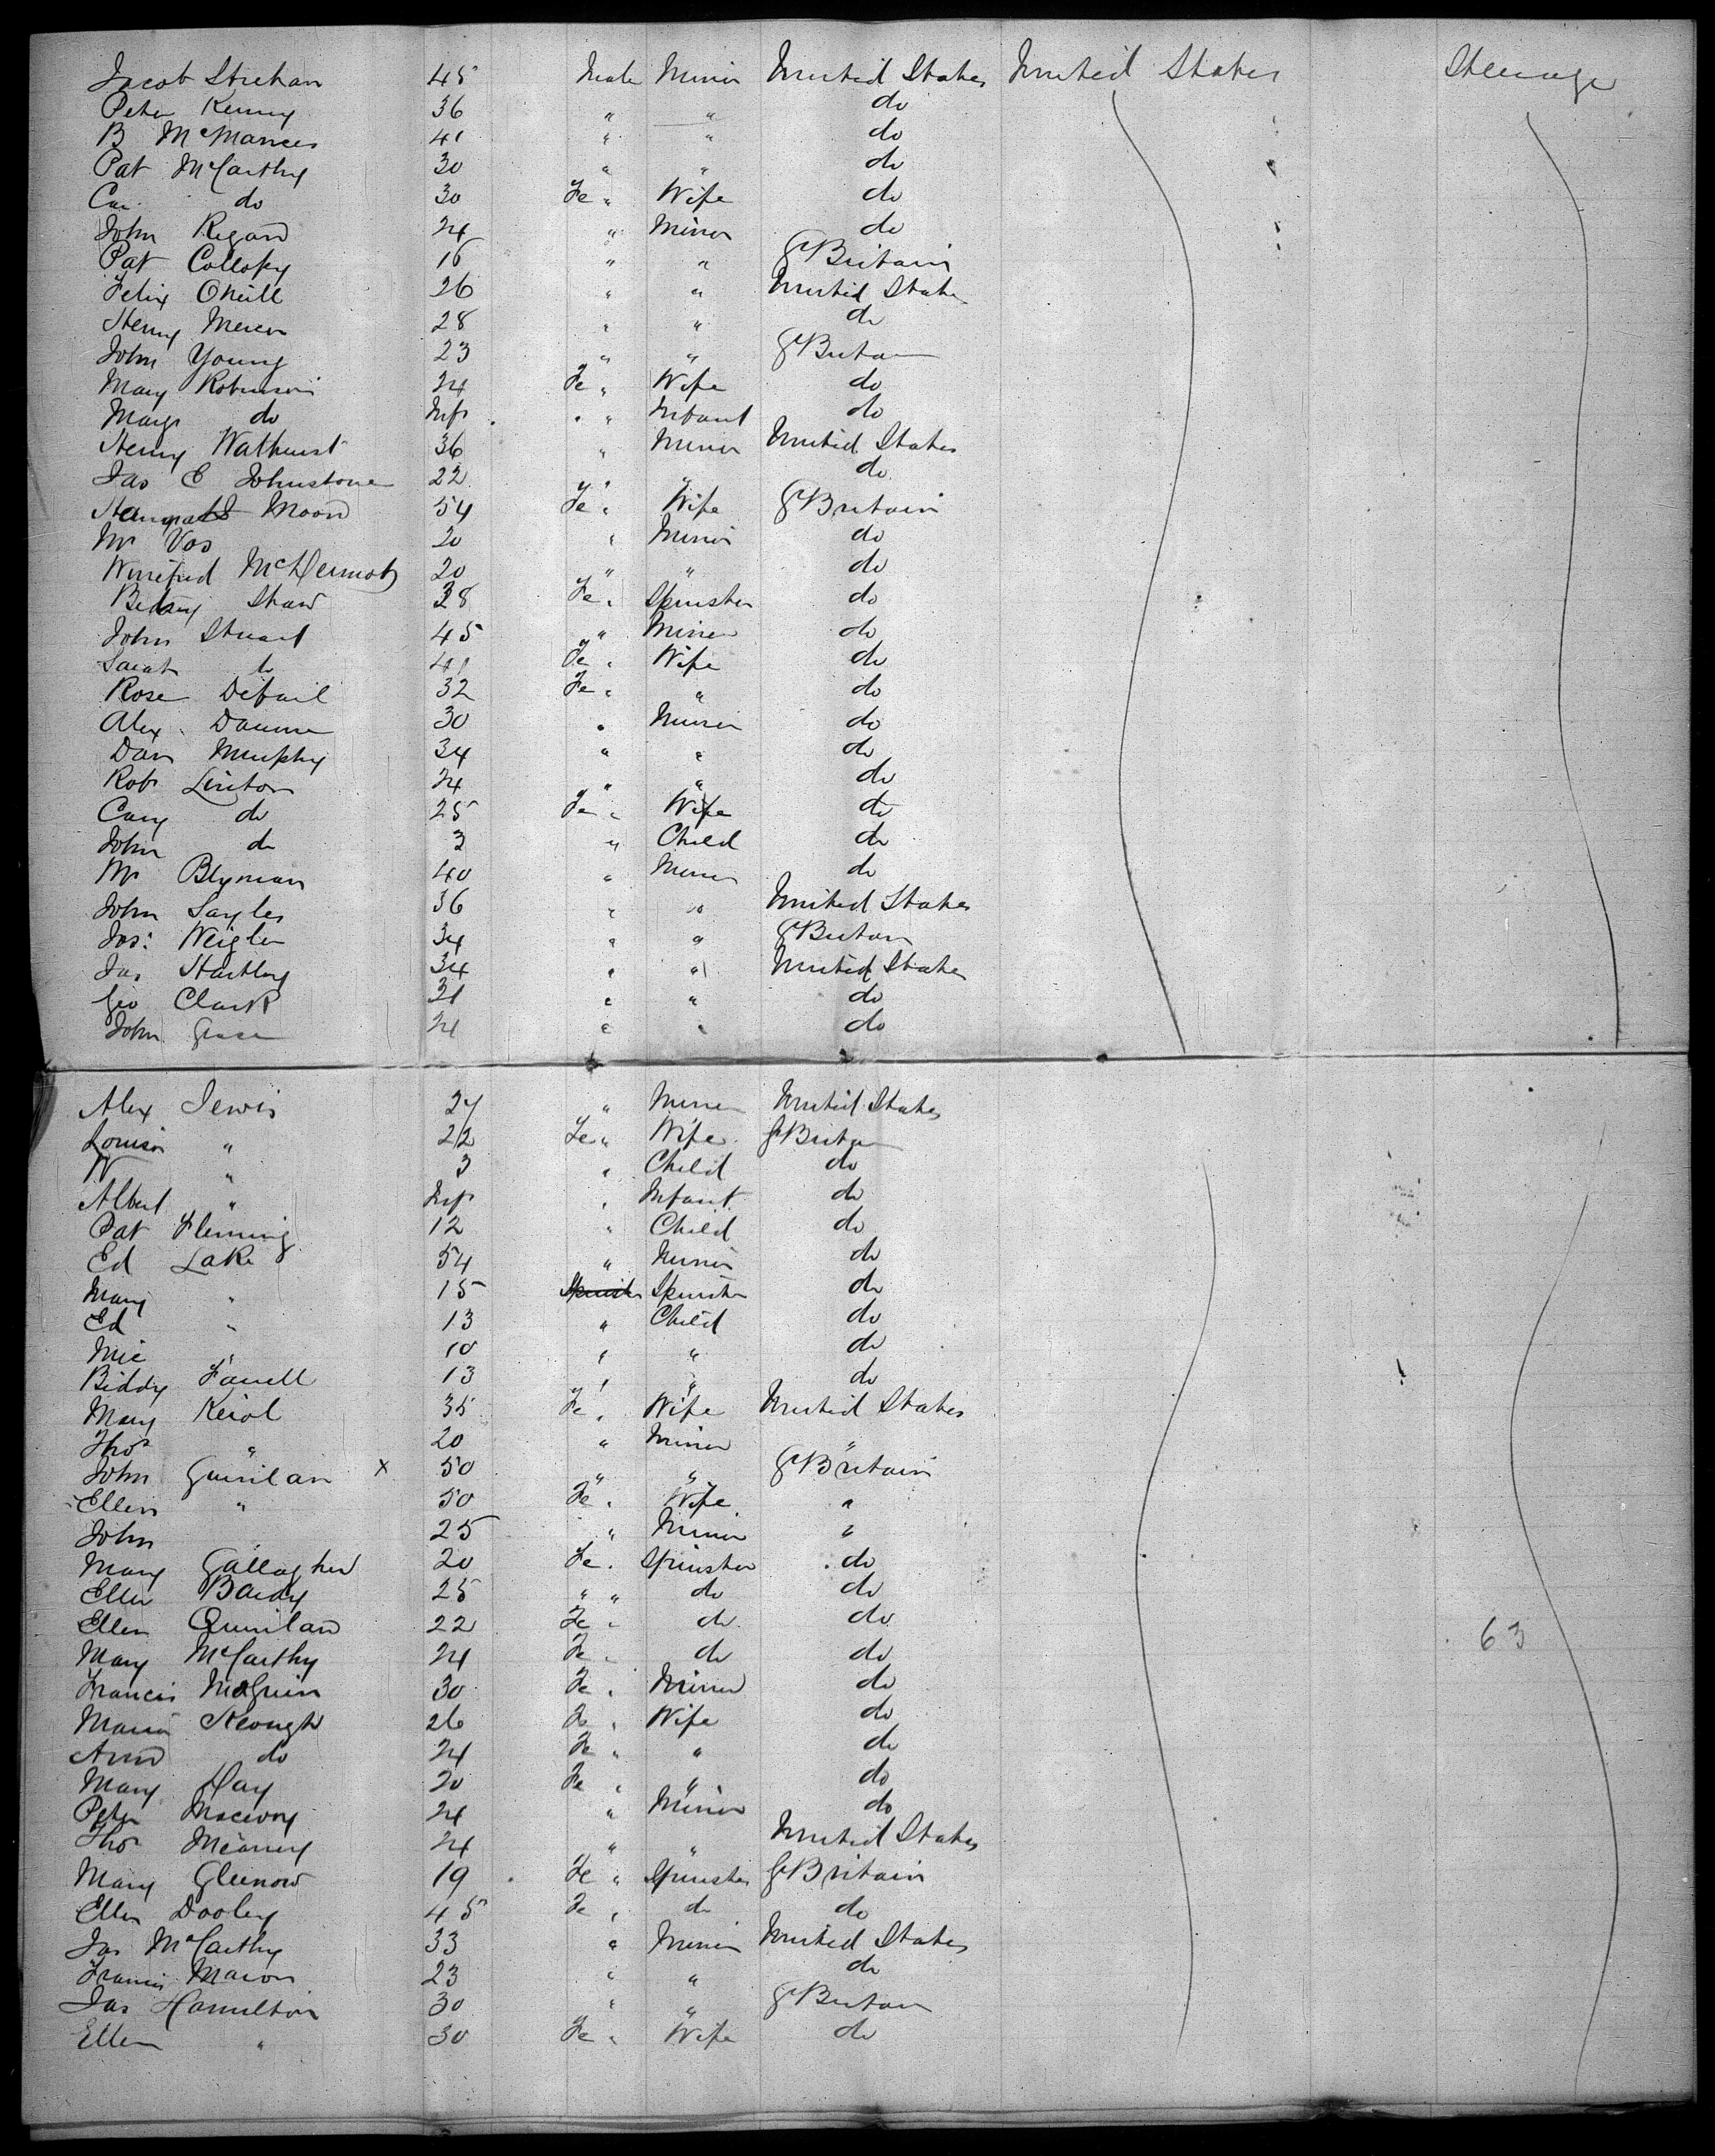 Jacob Strehan 45 Male Miner United States United States Steerage
Peter Kenny 36 " " do
B McManus 41 " " do
Pat McCarthy 30 " " do
do 30 Fe " Wife do
John Regan 24 " Miner do
Pat Collopy 16 " " Gt Britain
Felix ONeill 26 " " United States
Henry Mercer 28 " " do
John Young 23 " " Gt Britain
Mary Robinson 24 Fe " Wife do
Margt do Inft " " Infant do
Henry Wathurst 36 " Miner United States
Jas E Johnstone 22 " " do
Moon 54 Fe " Wife Gt Britain
Wm Vos 20 " Miner do
Winefred McDermott 20 " " do
Betsy Shaw 38 Fe " Spinster do
John Stuart 45 " Miner do
Sarah do 41 Fe " Wife do
Rose 32 Fe " " do
Alex 30 " Miner do
Dan Murphy 34 " " do
Robt Linton 24 " " do
do 25 Fe " Wife do
John do 3 " Child do
Wm Blyman 40 " Miner do
John Sayles 36 " " United States
Jos: Weigler 34 " " Gt Britain
Jas Hartley 34 " " United States
Geo Clark 21 " " do
John 24 " " do
Alex Lewis 27 " Miner United States
Louisa " 22 Fe " Wife Gt Britain
W " 3 " Child do
Albert " Inft " Infant do
Pat Fleming 12 " Child do
Ed Lake 54 " Miner do
Mary " 15 Spinster Spinster do
Ed " 13 " Child do
Mic " 10 " " do
Biddy Farrell 13 " " do
Mary Keiol 35 Fe " Wife United States
Thos " 20 " Miner "
John Quinlan x 50 " " Gt Britain
Ellen " 50 Fe " Wife "
John " 25 " Miner "
Mary Gallagher 20 Fe " Spinster do
Ellen 25 " " do do
Ellen Quinlan 22 Fe " do do 63
Mary McCarthy 24 Fe " do do
Francis 30 Fe " Miner do
Maria Keough 26 Fe " Wife do
Ann do 24 Fe " " do
Mary Hay 20 Fe " " do
Peter 24 " Miner do
Thos Meaney 24 " " United States
Mary Glenow 19 Fe " Spinster Gt Britain
Ellen Dooley 45 Fe " do do
Jas McCarthy 33 " Miner United States
Francis Mason 23 " " do
Jas Hamilton 30 " " Gt Britain
Ellen " 30 Fe " Wife do